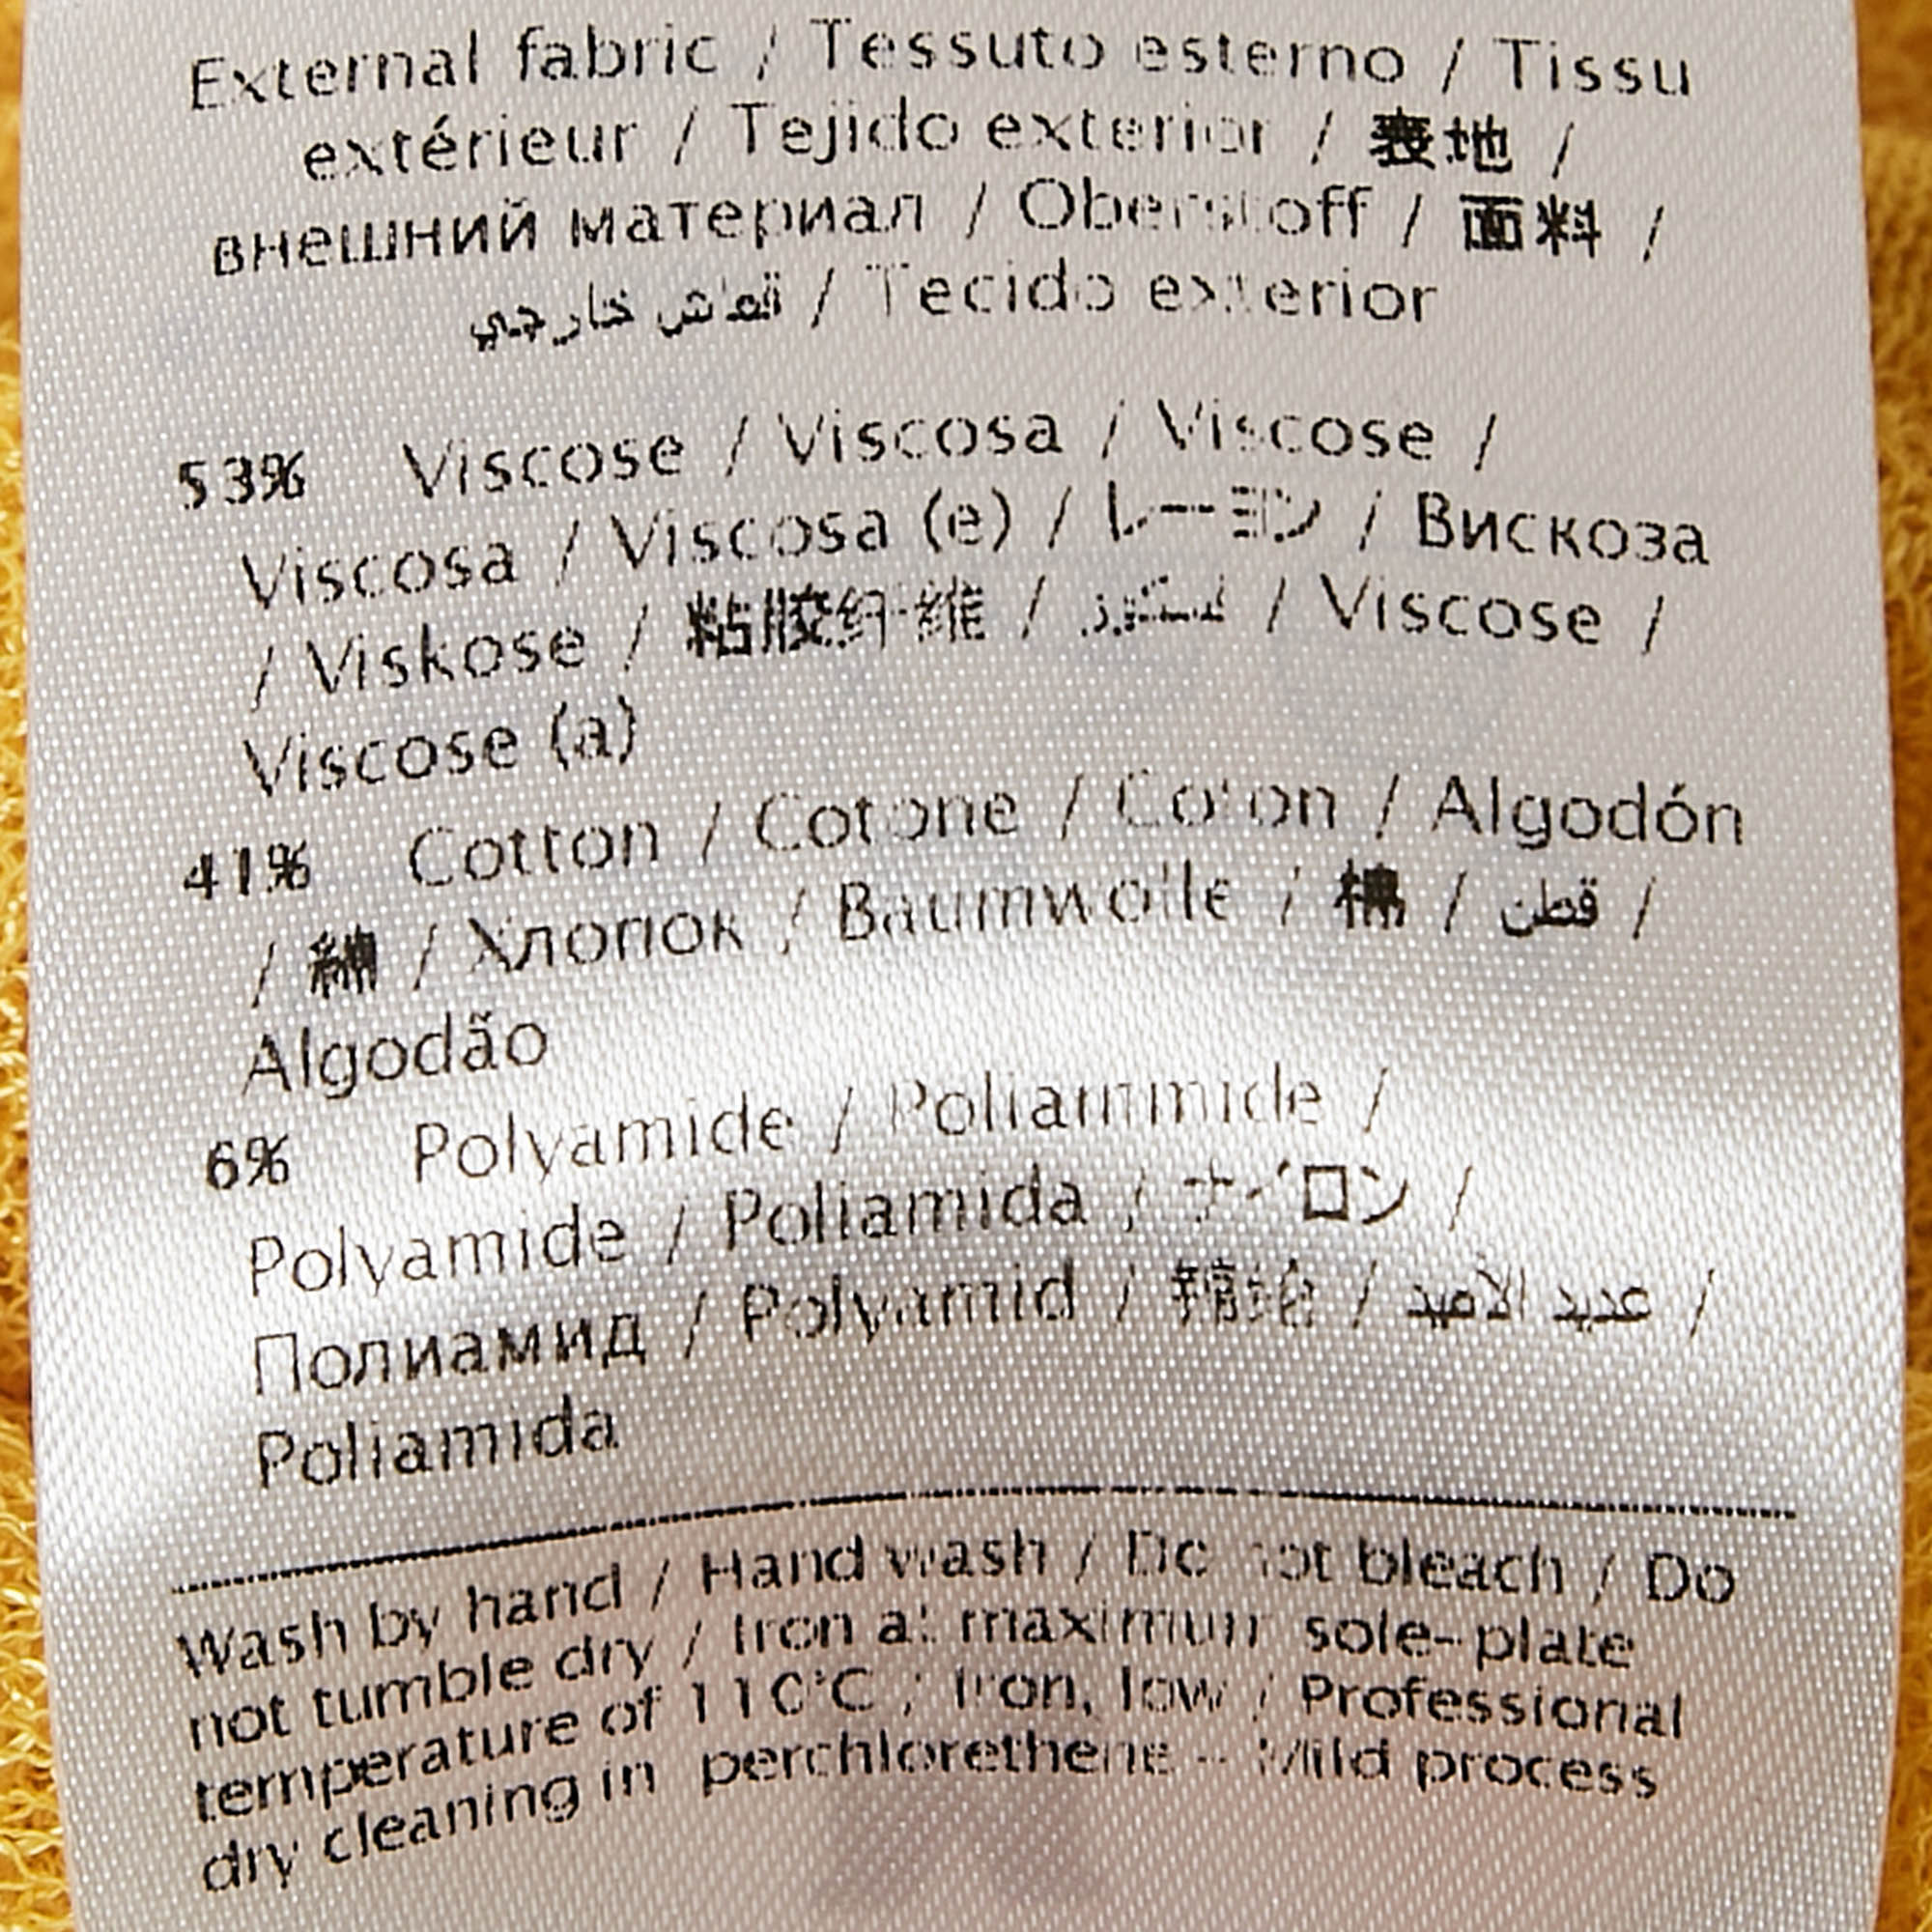 External fabric / Tessuto esterno / Tissu
extérieur / Tejido exterior / 表地 /
внешний материал / Oberstoff / 面料 /
قماش خارجي / Tecido exterior
53% Viscose / Viscosa / Viscose /
Viscosa / Viscosa (e) / レーヨン / Вискоза
/ Viskose / 粘胶纤维 / / Viscose /
Viscose (a)
41% Cotton / Cotone / Coton / Algodón
/ 綿 / Хлопок / Baumwolle / 棉 / قطن /
Algodão
6% Polyamide / Poliammide /
Polyamide / Poliamida / ナイロン /
Полиамид / Polyamid / / عديد الأميد /
Poliamida
Wash by hand / Hand wash / Do not bleach / Do
not tumble dry / Iron at maximum sole-plate
temperature of 110°C / Iron, low / Professional
dry cleaning in perchlorethene - Mild process